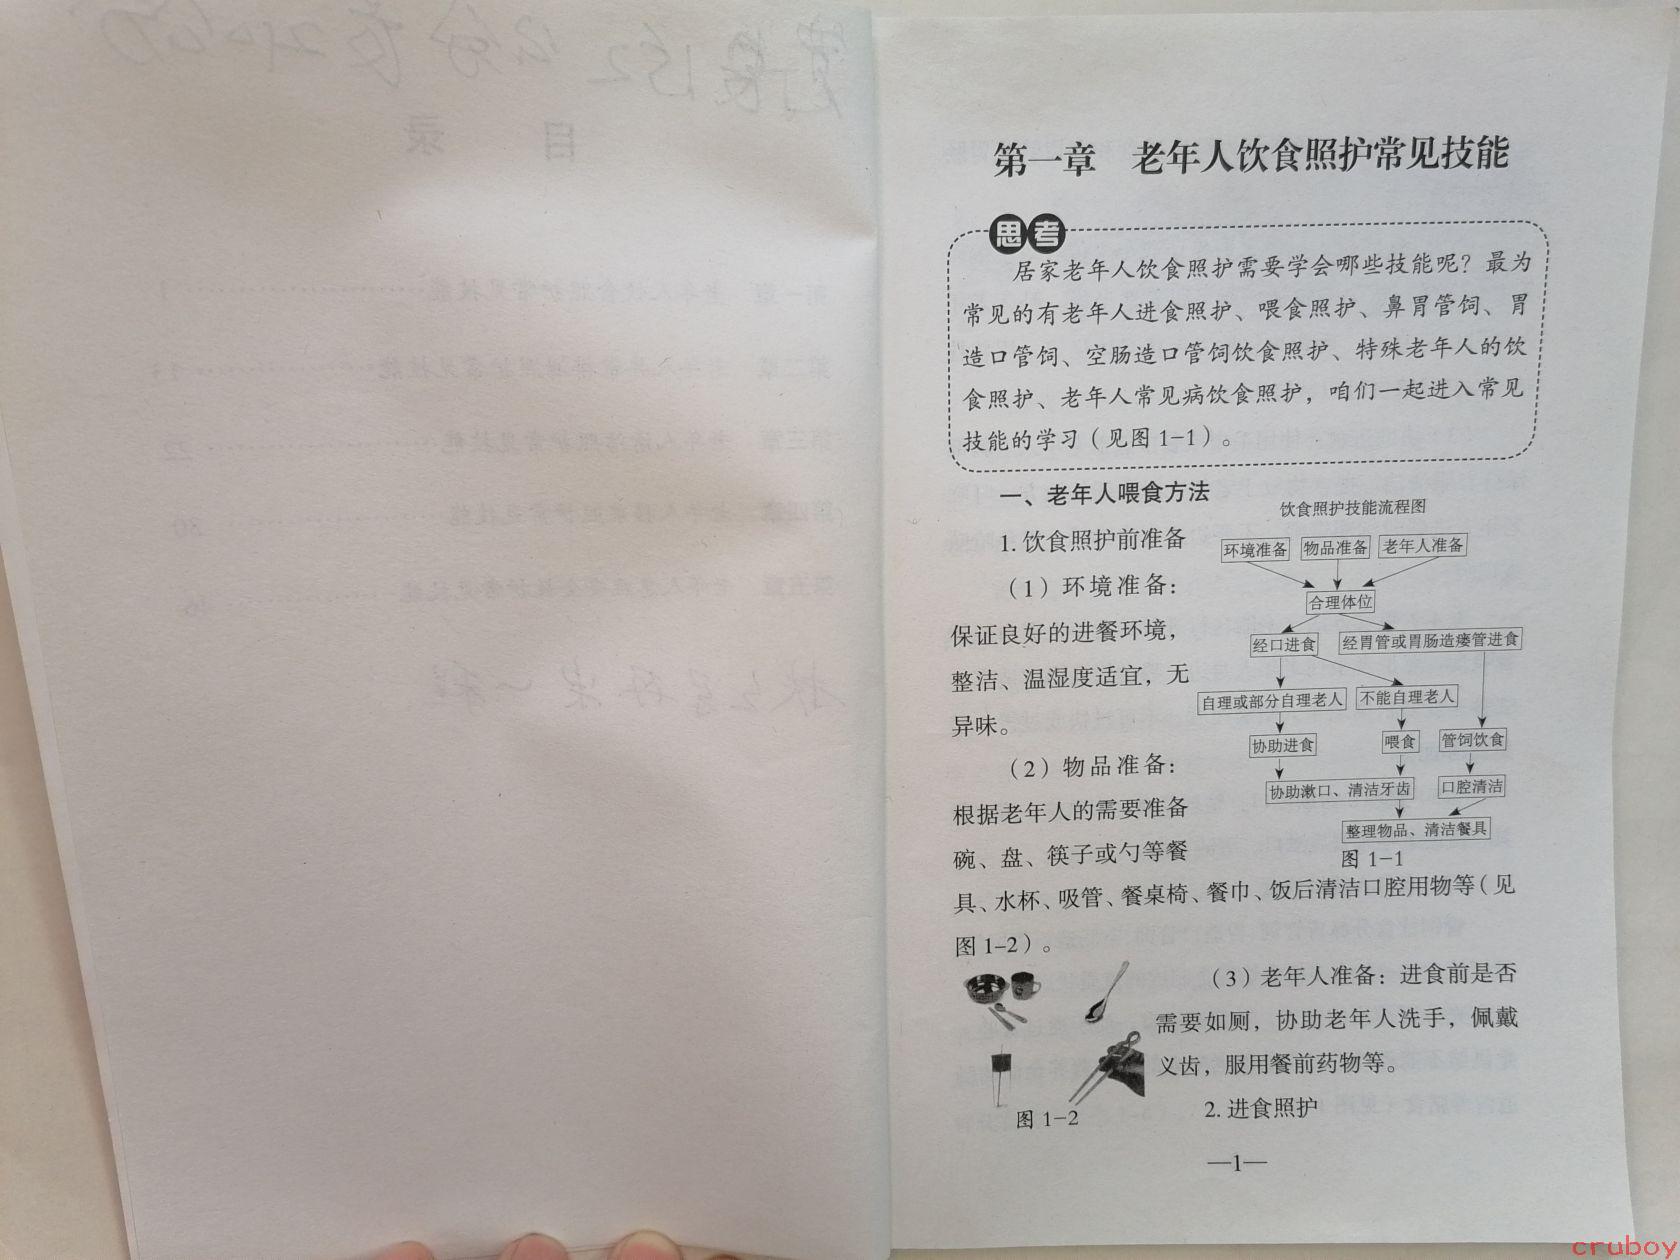 第一章 老年人饮食照护常见技能
思考
居家老年人饮食照护需要学会哪些技能呢？最为
常见的有老年人进食照护、喂食照护、鼻胃管饲、胃
造口管饲、空肠造口管饲饮食照护、特殊老年人的饮
食照护、老年人常见病饮食照护，咱们一起进入常见
技能的学习（见图1-1）。
一、老年人喂食方法
1. 饮食照护前准备
（1）环境准备：
保证良好的进餐环境，
整洁、温湿度适宜，无
异味。
（2）物品准备：
根据老年人的需要准备
碗、盘、筷子或勺等餐
具、水杯、吸管、餐桌椅、餐巾、饭后清洁口腔用物等（见
图1-2）。
饮食照护技能流程图
环境准备 物品准备 老年人准备
合理体位
经口进食 经胃管或胃肠造瘘管进食
自理或部分自理老人 不能自理老人
协助进食 喂食 管饲饮食
协助漱口、清洁牙齿 口腔清洁
整理物品、清洁餐具
图 1-1
（3）老年人准备：进食前是否
需要如厕，协助老年人洗手，佩戴
义齿，服用餐前药物等。
图 1-2
2. 进食照护
—1—
目 录
第一章 老年人饮食照护常见技能 1
第三章 22
第四章 30
第五章
cruboy